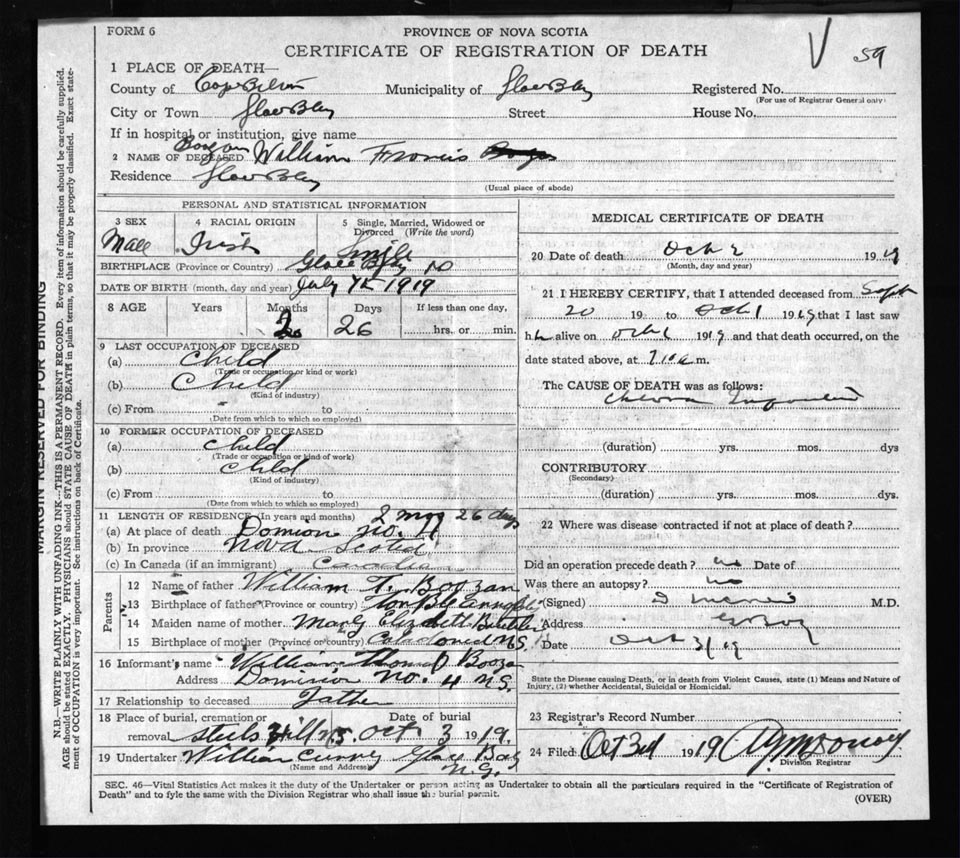 FORM 6
PROVINCE OF NOVA SCOTIA
CERTIFICATE OF REGISTRATION OF DEATH
59
1 PLACE OF DEATH—
County of Cape Breton Municipality of Glace Bay Registered No.
(For use of Registrar General only)
City or Town Glace Bay Street House No.
If in hospital or institution, give name
Boozan
2 NAME OF DECEASED William Francis
Residence Glace Bay
(Usual place of abode)
PERSONAL AND STATISTICAL INFORMATION
3 SEX 4 RACIAL ORIGIN 5 Single, Married, Widowed or Divorced (Write the word)
Male Irish Single
BIRTHPLACE (Province or Country) Glace Bay
DATE OF BIRTH (month, day and year) July 1919
8 AGE Years Months Days If less than one day,
2 26 hrs. or min.
9 LAST OCCUPATION OF DECEASED
(a) Child
(Trade or occupation or kind or work)
(b) Child
(Kind of industry)
(c) From to
(Date from which to which so employed)
10 FORMER OCCUPATION OF DECEASED
(a) child
(Trade or occupation or kind of work)
(b) child
(Kind of industry)
(c) From to
(Date from which to which so employed)
11 LENGTH OF RESIDENCE (In years and months) 2 mos 26 days
(a) At place of death Domion No. 4
(b) In province Nova Scotia
(c) In Canada (if an immigrant) Canadian
Parents
12 Name of father William T. Boozan
13 Birthplace of father (Province or country)
14 Maiden name of mother Mary Elizabeth
15 Birthplace of mother (Province or country) N.S.
16 Informant's name William Thomas Boozan
Address Dominion No. 4 N.S.
17 Relationship to deceased Father
18 Place of burial, cremation or removal Steels Hill N.S. Date of burial Oct 3 1919.
19 Undertaker William Curry Glace Bay N.S.
(Name and Address)
MEDICAL CERTIFICATE OF DEATH
20 Date of death Oct 2 1919
(Month, day and year)
21 I HEREBY CERTIFY, that I attended deceased from Sept
20 19 to Oct 1 1919 that I last saw
h alive on Oct 1 1919 and that death occurred, on the
date stated above, at m.
The CAUSE OF DEATH was as follows:
Cholera Infantum
(duration) yrs. mos. dys
CONTRIBUTORY
(Secondary)
(duration) yrs. mos. dys.
22 Where was disease contracted if not at place of death?
Did an operation precede death? no Date of
Was there an autopsy? no
(Signed) M.D.
Address G Bay
Date Oct 3/19
State the Disease causing Death, or in death from Violent Causes, state (1) Means and Nature of Injury, (2) whether Accidental, Suicidal or Homicidal.
23 Registrar's Record Number
24 Filed Oct 3rd 1919
Division Registrar
SEC. 46—Vital Statistics Act makes it the duty of the Undertaker or person acting as Undertaker to obtain all the particulars required in the "Certificate of Registration of
Death" and to fyle the same with the Division Registrar who shall issue the burial permit.
(OVER)
MARGIN RESERVED FOR BINDING
N.B.—WRITE PLAINLY WITH UNFADING INK—THIS IS A PERMANENT RECORD. Every item of information should be carefully supplied.
AGE should be stated EXACTLY. PHYSICIANS should STATE CAUSE OF DEATH in plain terms, so that it may be properly classified. Exact state-
ment of OCCUPATION is very important. See instructions on back of Certificate.